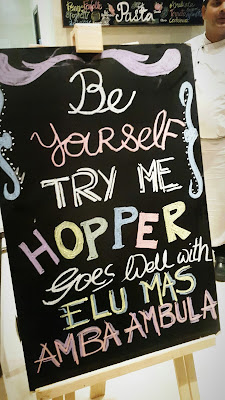 Pasta
Be
Yourself
TRY ME
HOPPER
Goes Well with
ELU MAS
AMBA AMBULA